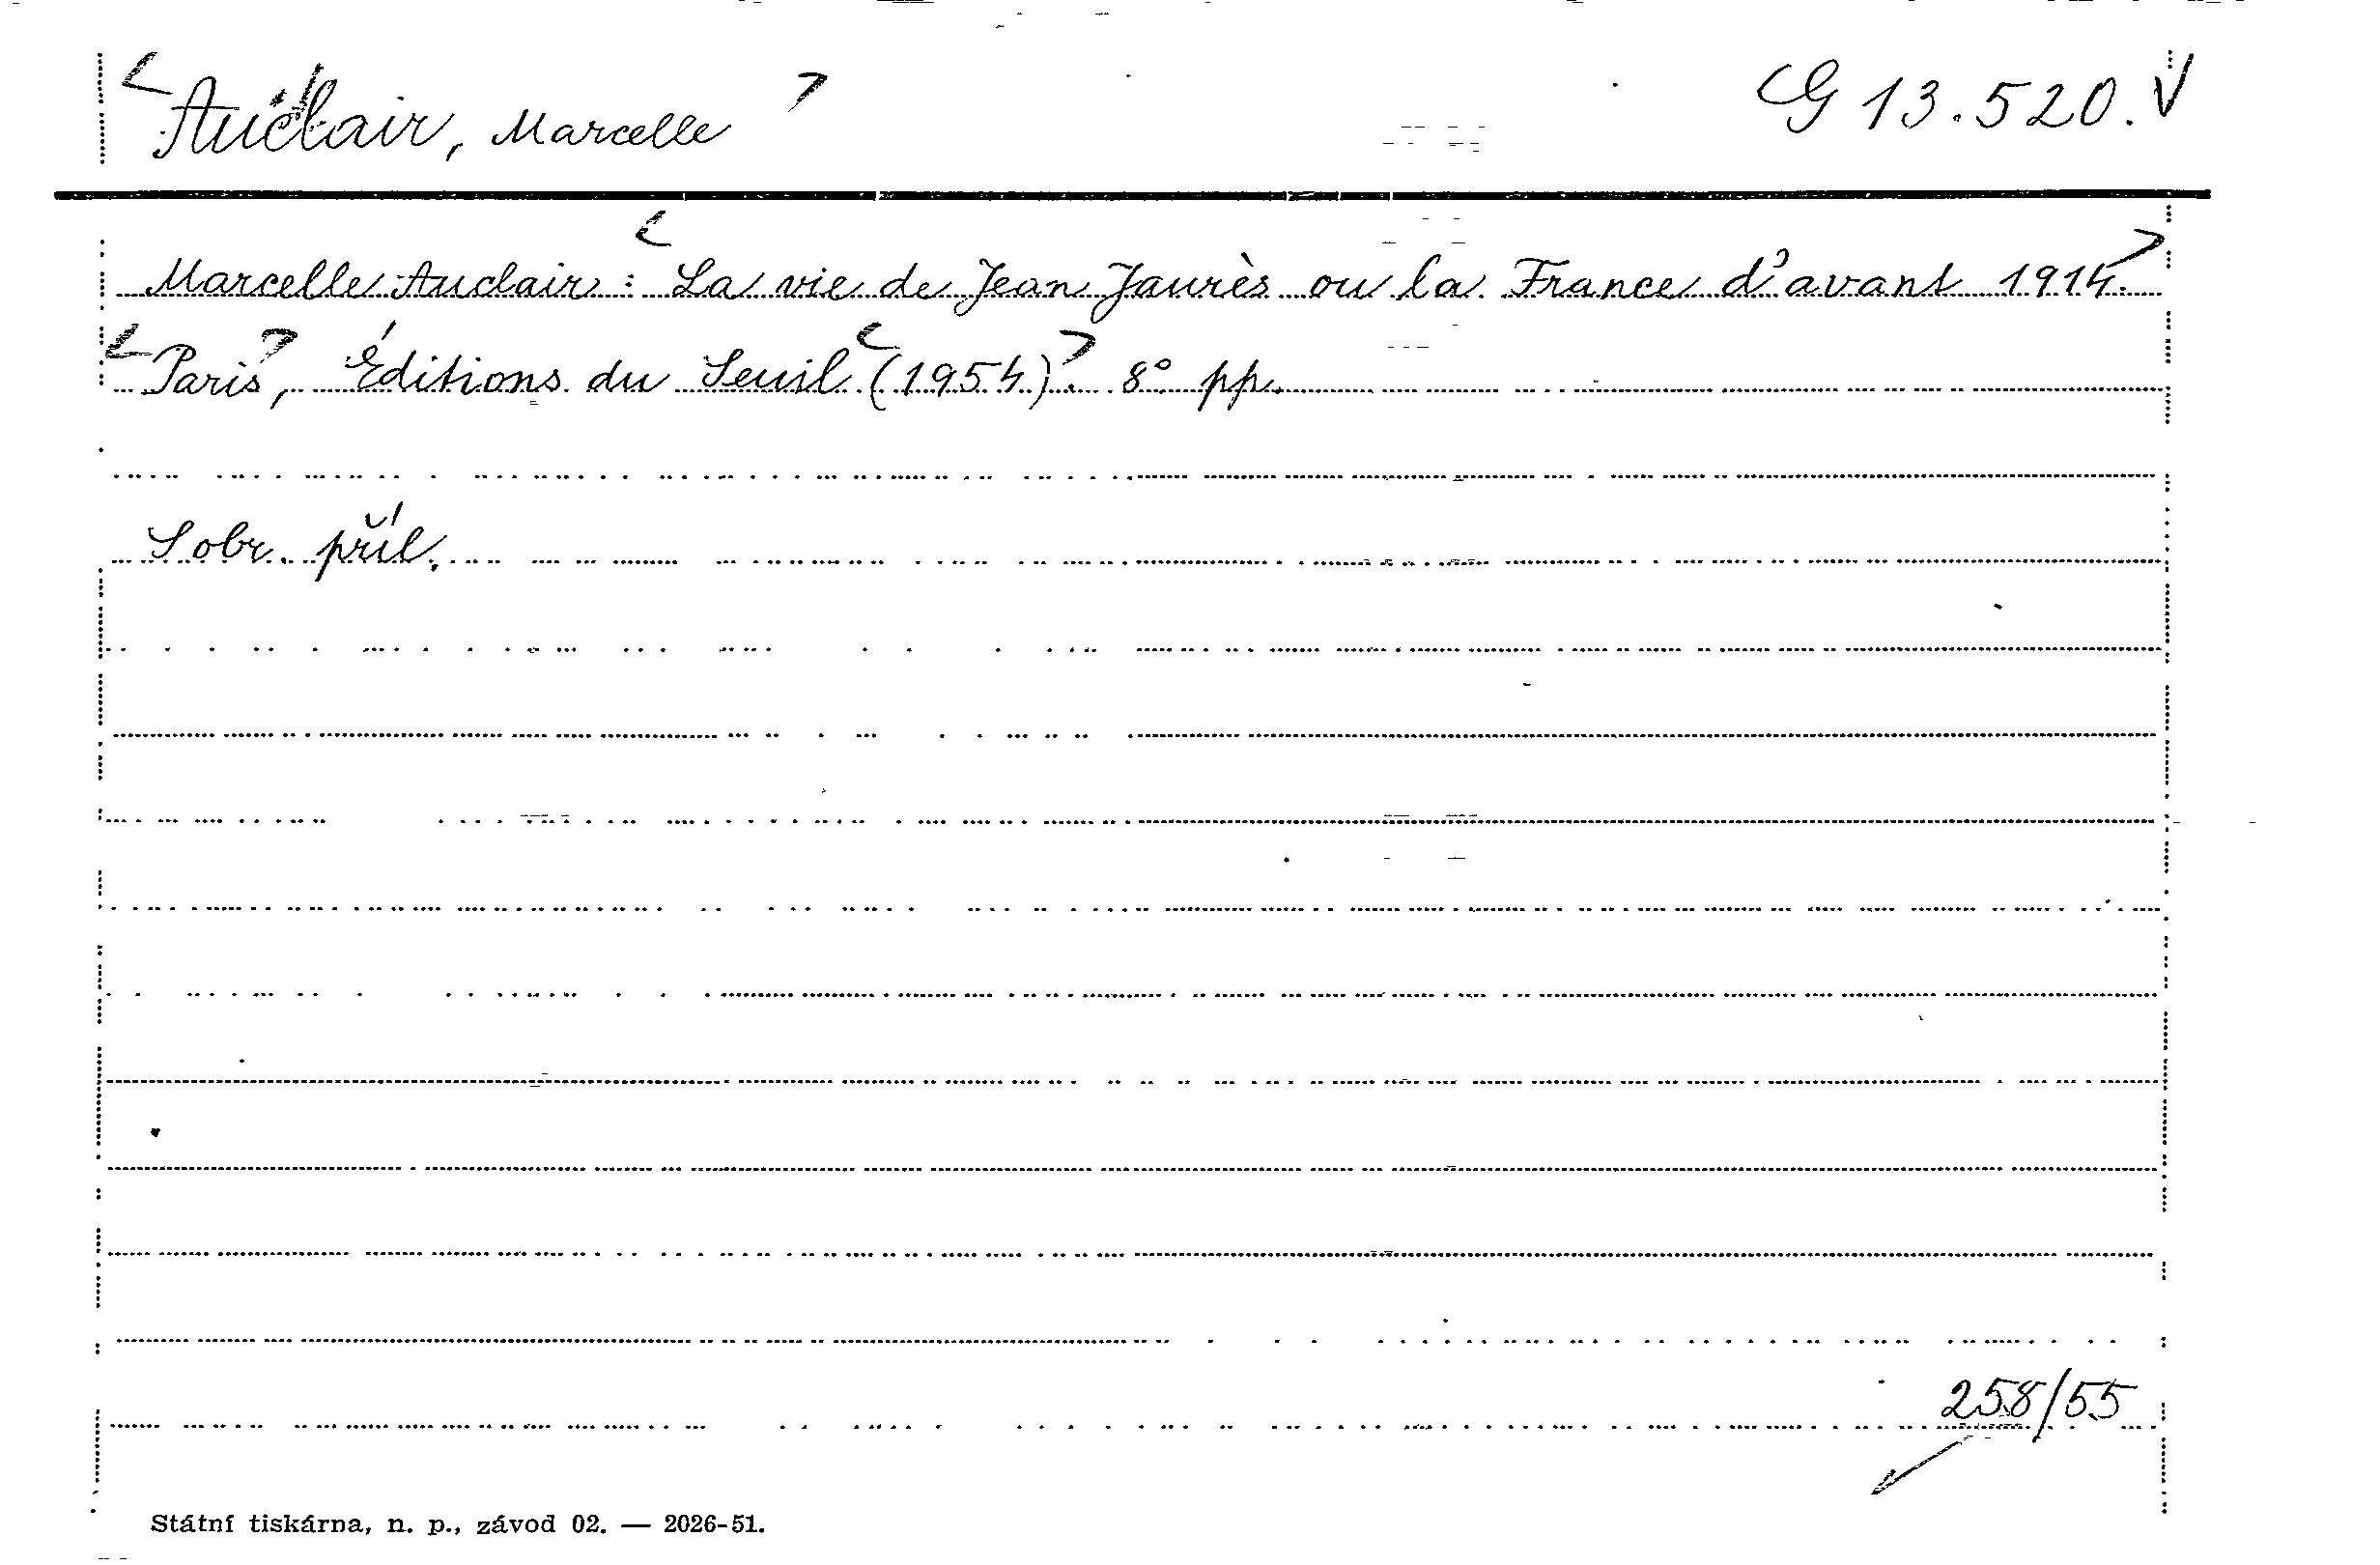 Auclair, Marcelle
G 13.520.
Marcelle Auclair: La vie de Jean Jaurès ou la France d'avant 1914.
Paris, Éditions du Seuil (1954). 8° pp.
S obr. příl.
258/55
Státní tiskárna, n. p., závod 02. — 2026-51.